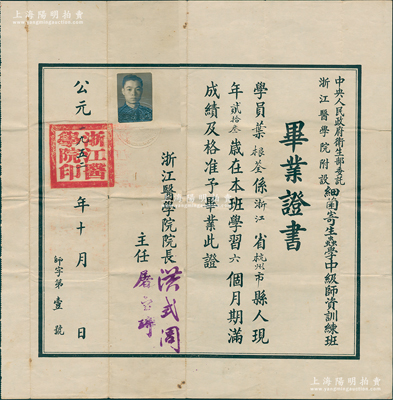 上海陽明拍賣
中央人民政府衛生部委託
浙江醫學院附設細菌寄生蟲學中級師資訓練班
畢業證書
學員葉根荃係浙江省杭州市縣人現
年貳拾叁歲在本班學習六個月期滿
成績及格准予畢業此證
浙江醫學院院長洪式閭
主任
公元一九五 年十月 日
浙江醫學院印
師字第壹號
上海陽明拍賣